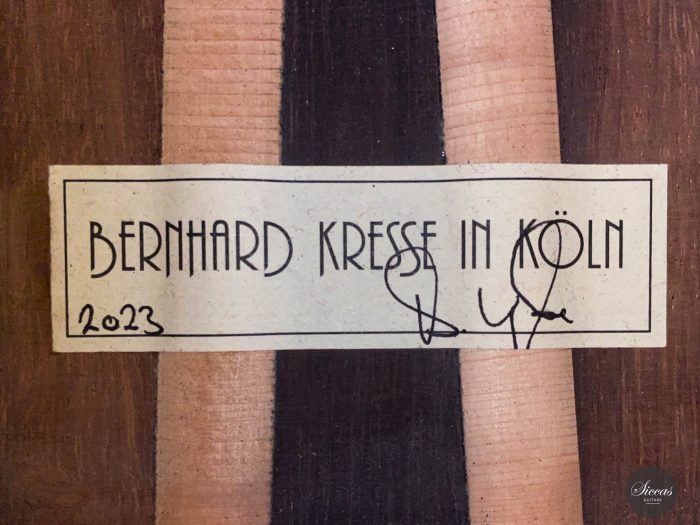 BERNHARD KRESSE IN KÖLN
2023
Siccas
GUITARS